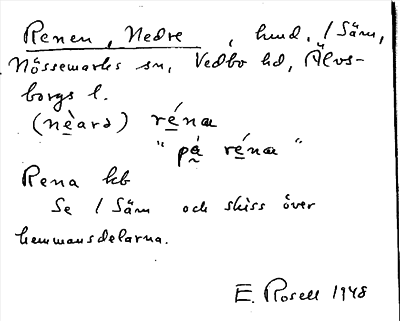 Renen, Nedre, hmd. i Säm,
Nössemarks sn, Vedbo hd, Älvs-
borgs l.
(nèarə) rénaɑ
"på rénaɑ"
Rena kb
Se i Säm och skiss över
hemmansdelarna.
E. Rosell 1948